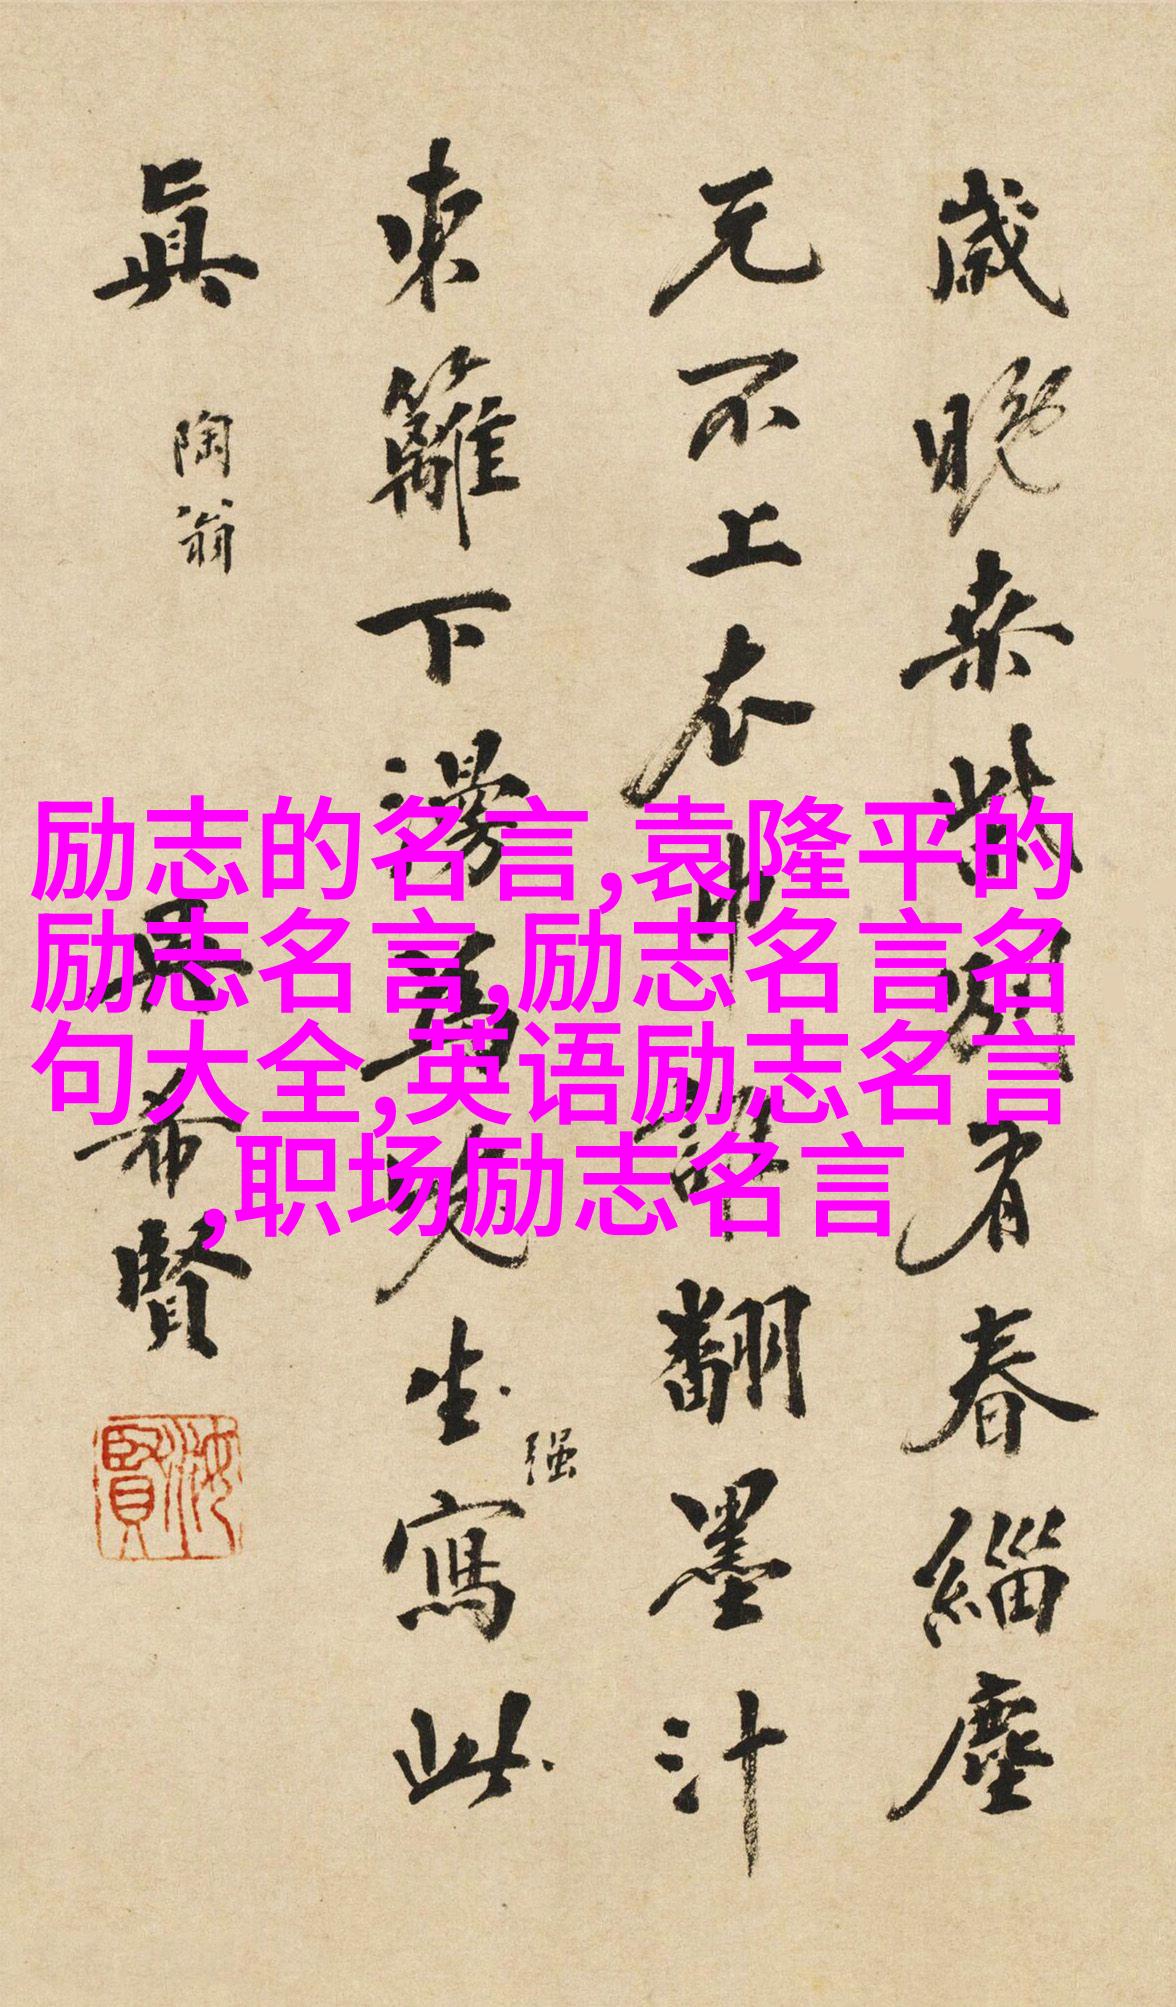 歲晚來

春緇塵
元不上衣巾
翻墨汁
東籬下漫

生寫此
强
真
陶翁
吳希賢
励志的名言,袁隆平的
励志名言,励志名言名
句大全,英语励志名言
,职场励志名言